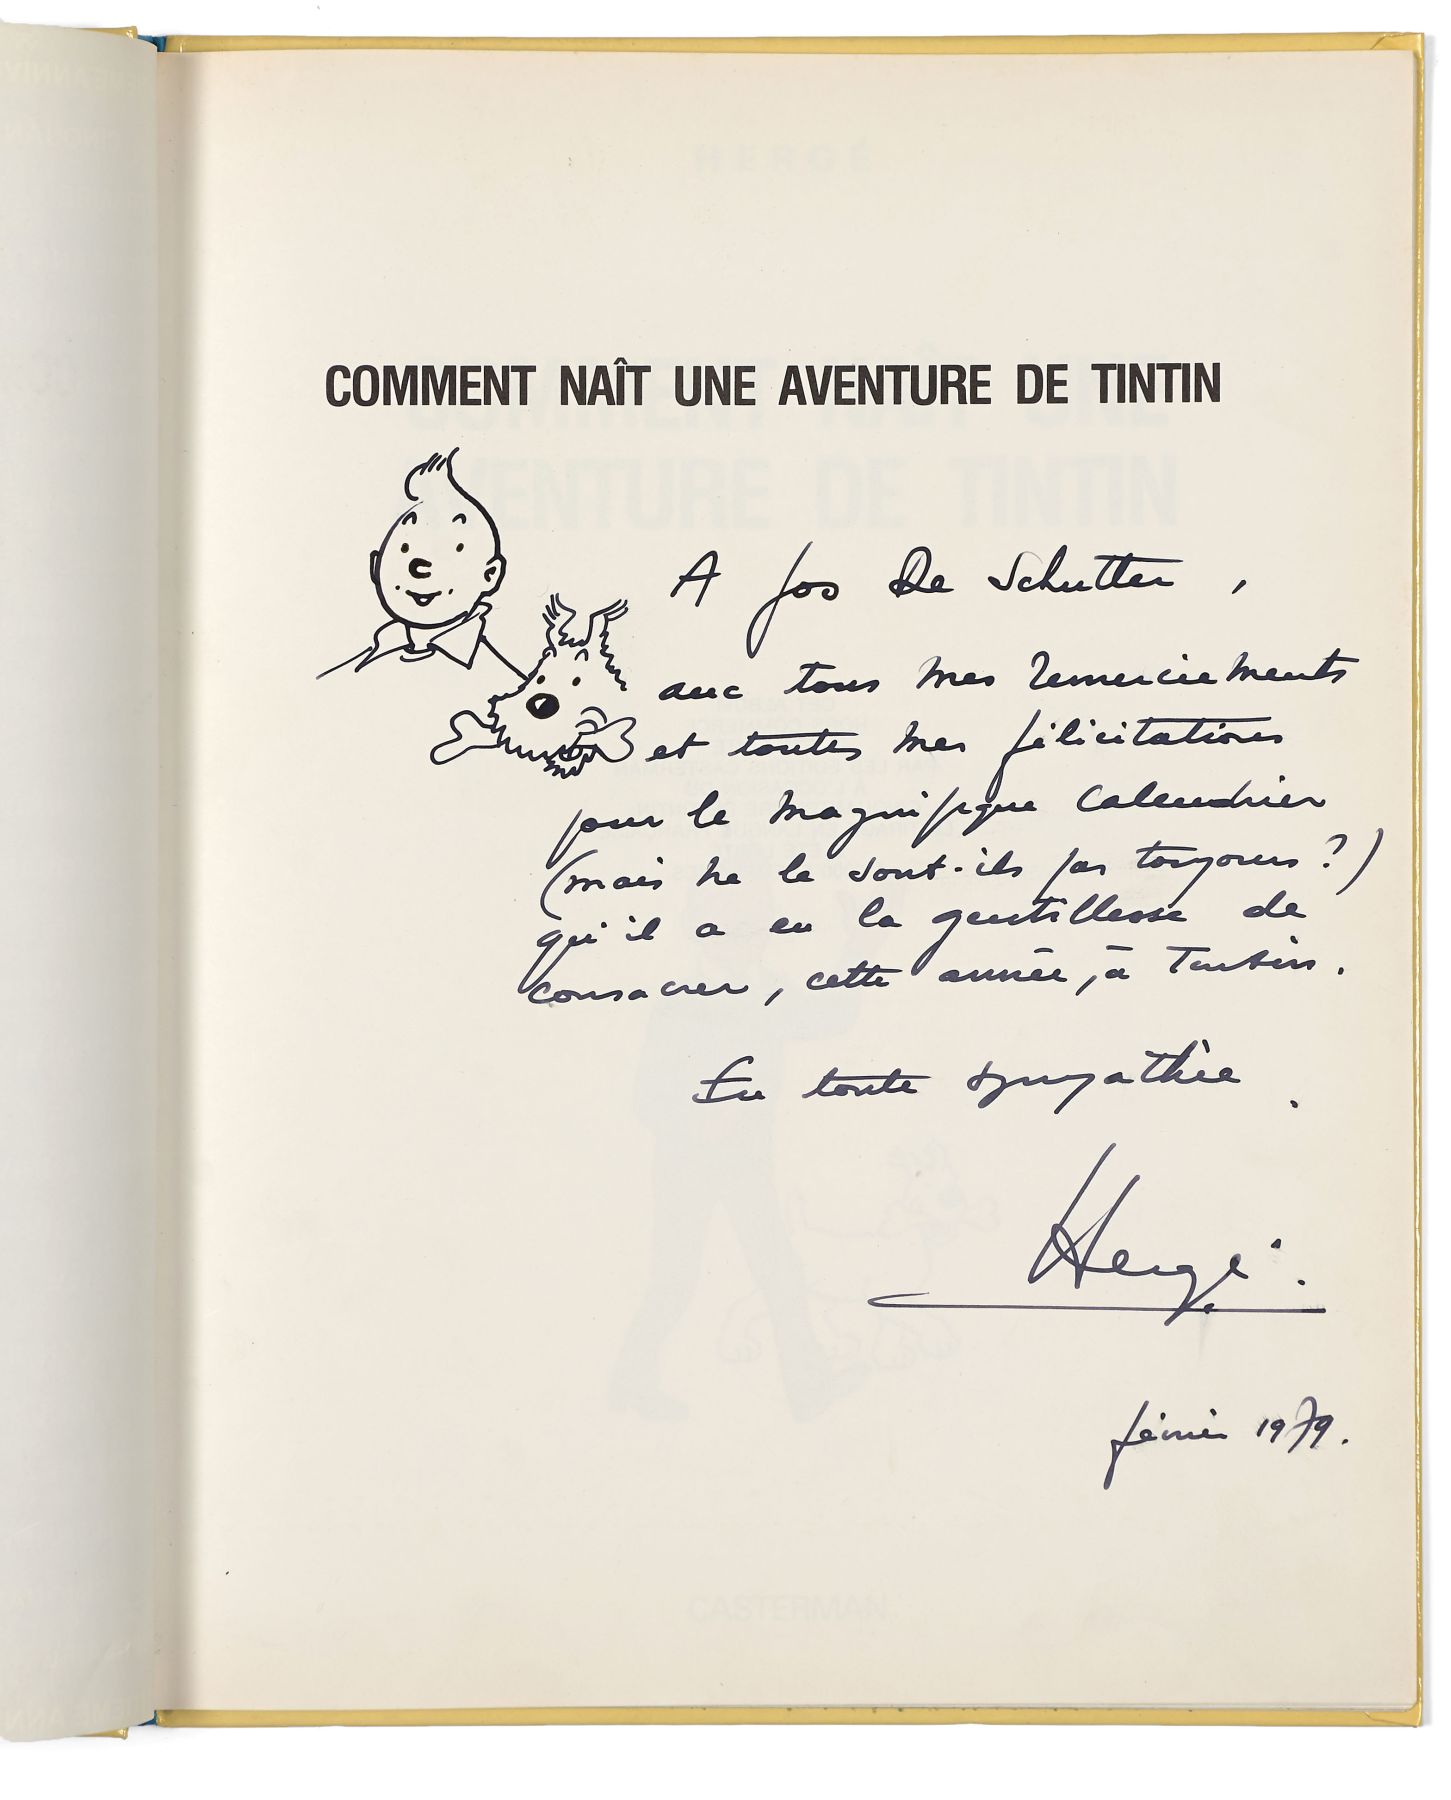 HERGÉ
COMMENT NAÎT UNE AVENTURE DE TINTIN
A Jos De Schutter,
avec tous mes remerciements
et toutes mes félicitations
pour le magnifique calendrier
(mais ne le sont-ils pas toujours ?)
qu'il a eu la gentillesse de
consacrer, cette année, à Tintin.
En toute sympathie.
Hergé.
février 1979.
CASTERMAN